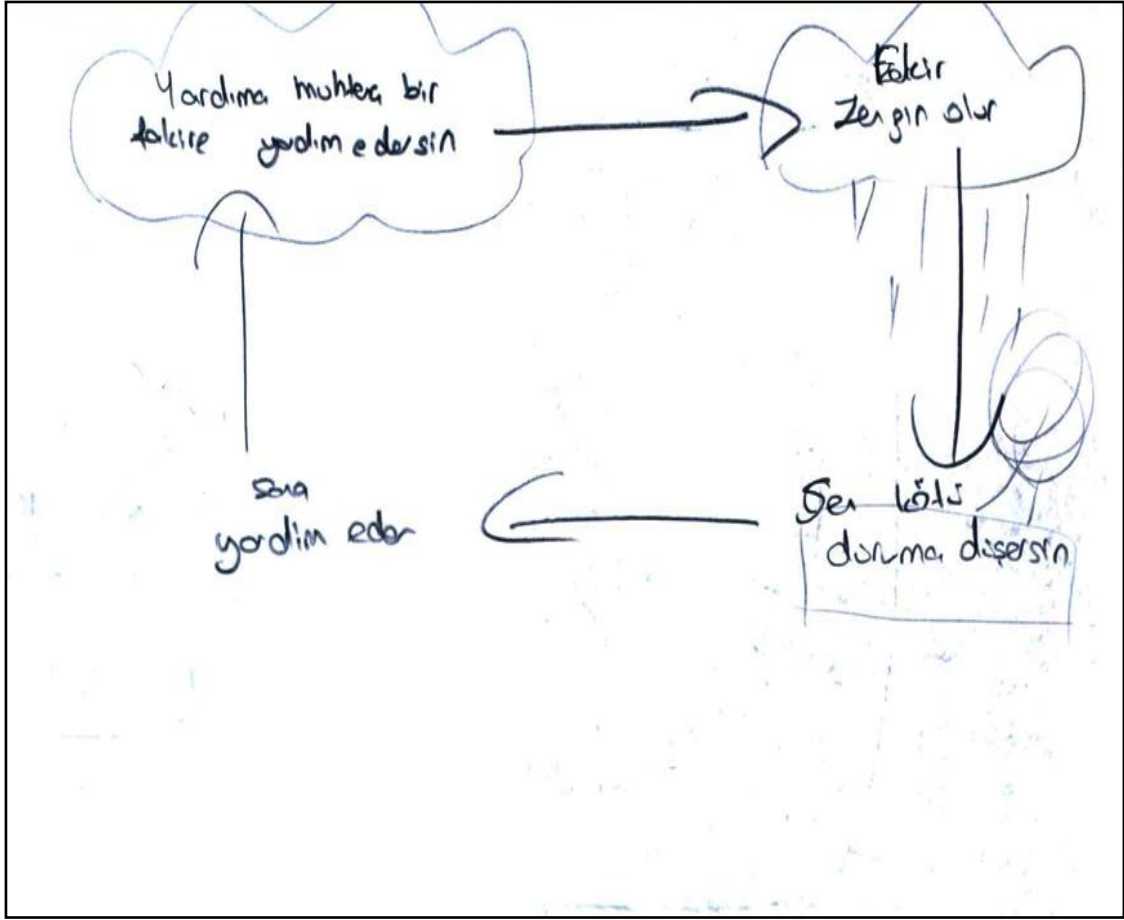 Yardıma muhtaç bir
fakire yardım edersin
Fakir
Zengin olur
Sen kötü
duruma düşersin
Sana
yardim eder